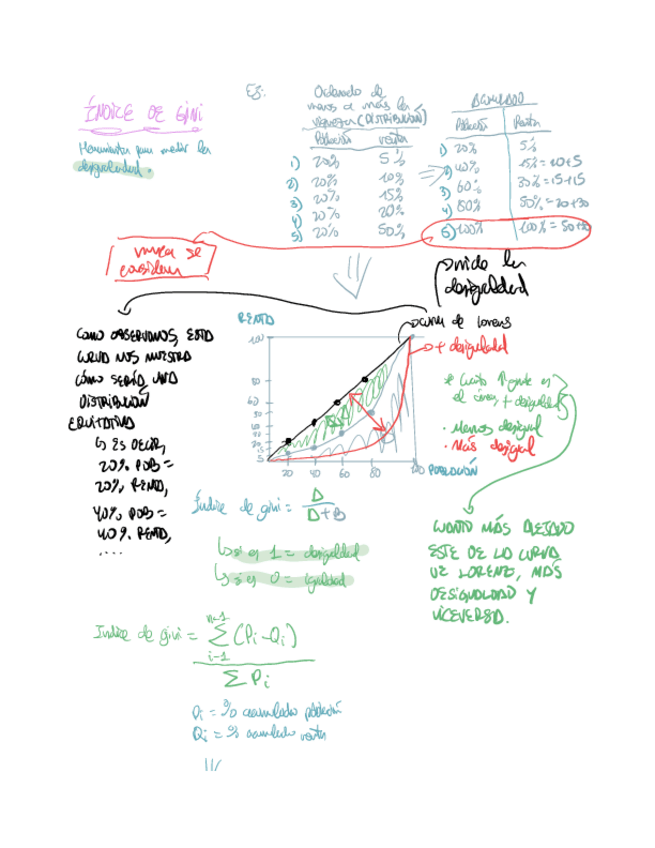 ÍNDICE DE GINI
Herramienta para medir la
desigualdad.
Ej:
Ordenado de
menos a más la
riqueza (DISTRIBUCIÓN)
Población renta
1) 20% 5%
2) 20% 10%
3) 20% 15%
4) 20% 20%
5) 20% 50%
ACUMULADO
Población Renta
1) 20% 5%
2) 40% 15% = 10+5
3) 60% 30% = 15+15
4) 80% 50% = 20+30
5) 100% 100% = 50+50
nunca se
considera
mide la
desigualdad
COMO OBSERVAMOS, ESTA
CURVA NOS MUESTRA
CÓMO SERÍA UNA
DISTRIBUCIÓN
EQUITATIVA
↳ ES DECIR,
20% POB =
20% RENTA,
40% POB =
40% RENTA,
....
RENTA
curva de Lorenz
+ desigualdad
100
80
60
50
5
20 40 60 80 100 POBLACIÓN
* Cuanto más grande es
el área, + desigualdad
· Menos desigual
· Más desigual
CUANTO MÁS ALEJADO
ESTE DE LA CURVA
DE LORENZ, MÁS
DESIGUALDAD Y
VICEVERSA.
Índice de gini = A / A+B
↳ si es 1 = desigualdad
↳ si es 0 = igualdad
Indice de gini = n-1 Σ i=1 (Pi - Qi)
Σ Pi
Pi = % acumulado población
Qi = % acumulado renta